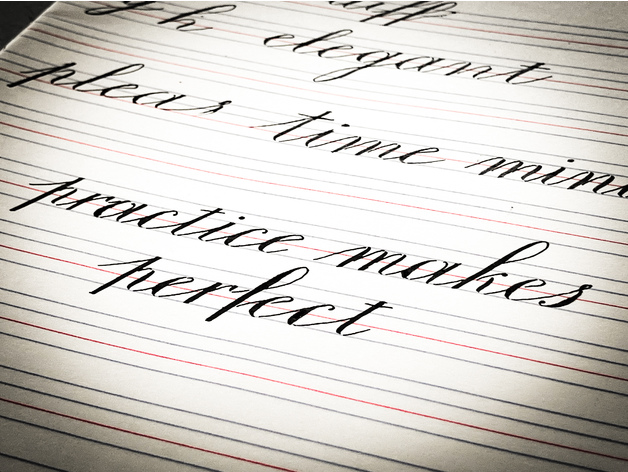 elegant
pleas time mind
practice makes
perfect